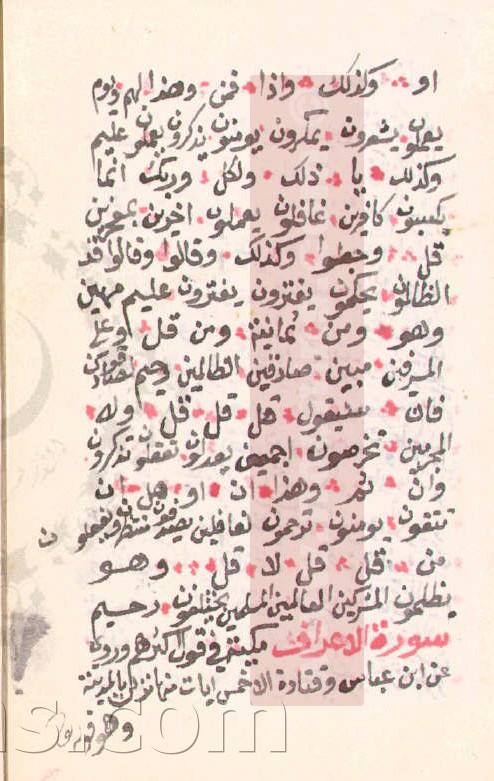 او وكذلك واذا فمن وهذا لهم ويوم
يعملون يشعرون يمكرون يومنون يذكرون يعملون عليم
وكذلك يا ذلك ولكل وربك انما
يكسبون كافرين غافلون يعملون اخرين بمعجزين
قل وجعلوا وكذلك وقالوا وقالوا قد
الظالمون يحكمون يفترون يفترون عليم مهتدين
وهو ومن ثمانية ومن قل وعلى
المسرفين مبين صادقين الظالمين رحيم لصادقون
فان سيقول قل قل قل ولا
المجرمين تخرصون اجمعين يعدلون تعقلون تذكرون
وان ثم وهذا ان او هل ان
تتقون يومنون ترحمون لغافلين يصدفون منتظرون يفعلون
من قل قل لا قل وهو
يظلمون المشركين العالمين المسلمين تختلفون رحيم
سورة الاعراف مكية في قول اكثرهم وروي
عن ابن عباس وقتادة الا خمس ايات منها نزلن بالمدينة
وهو قوله